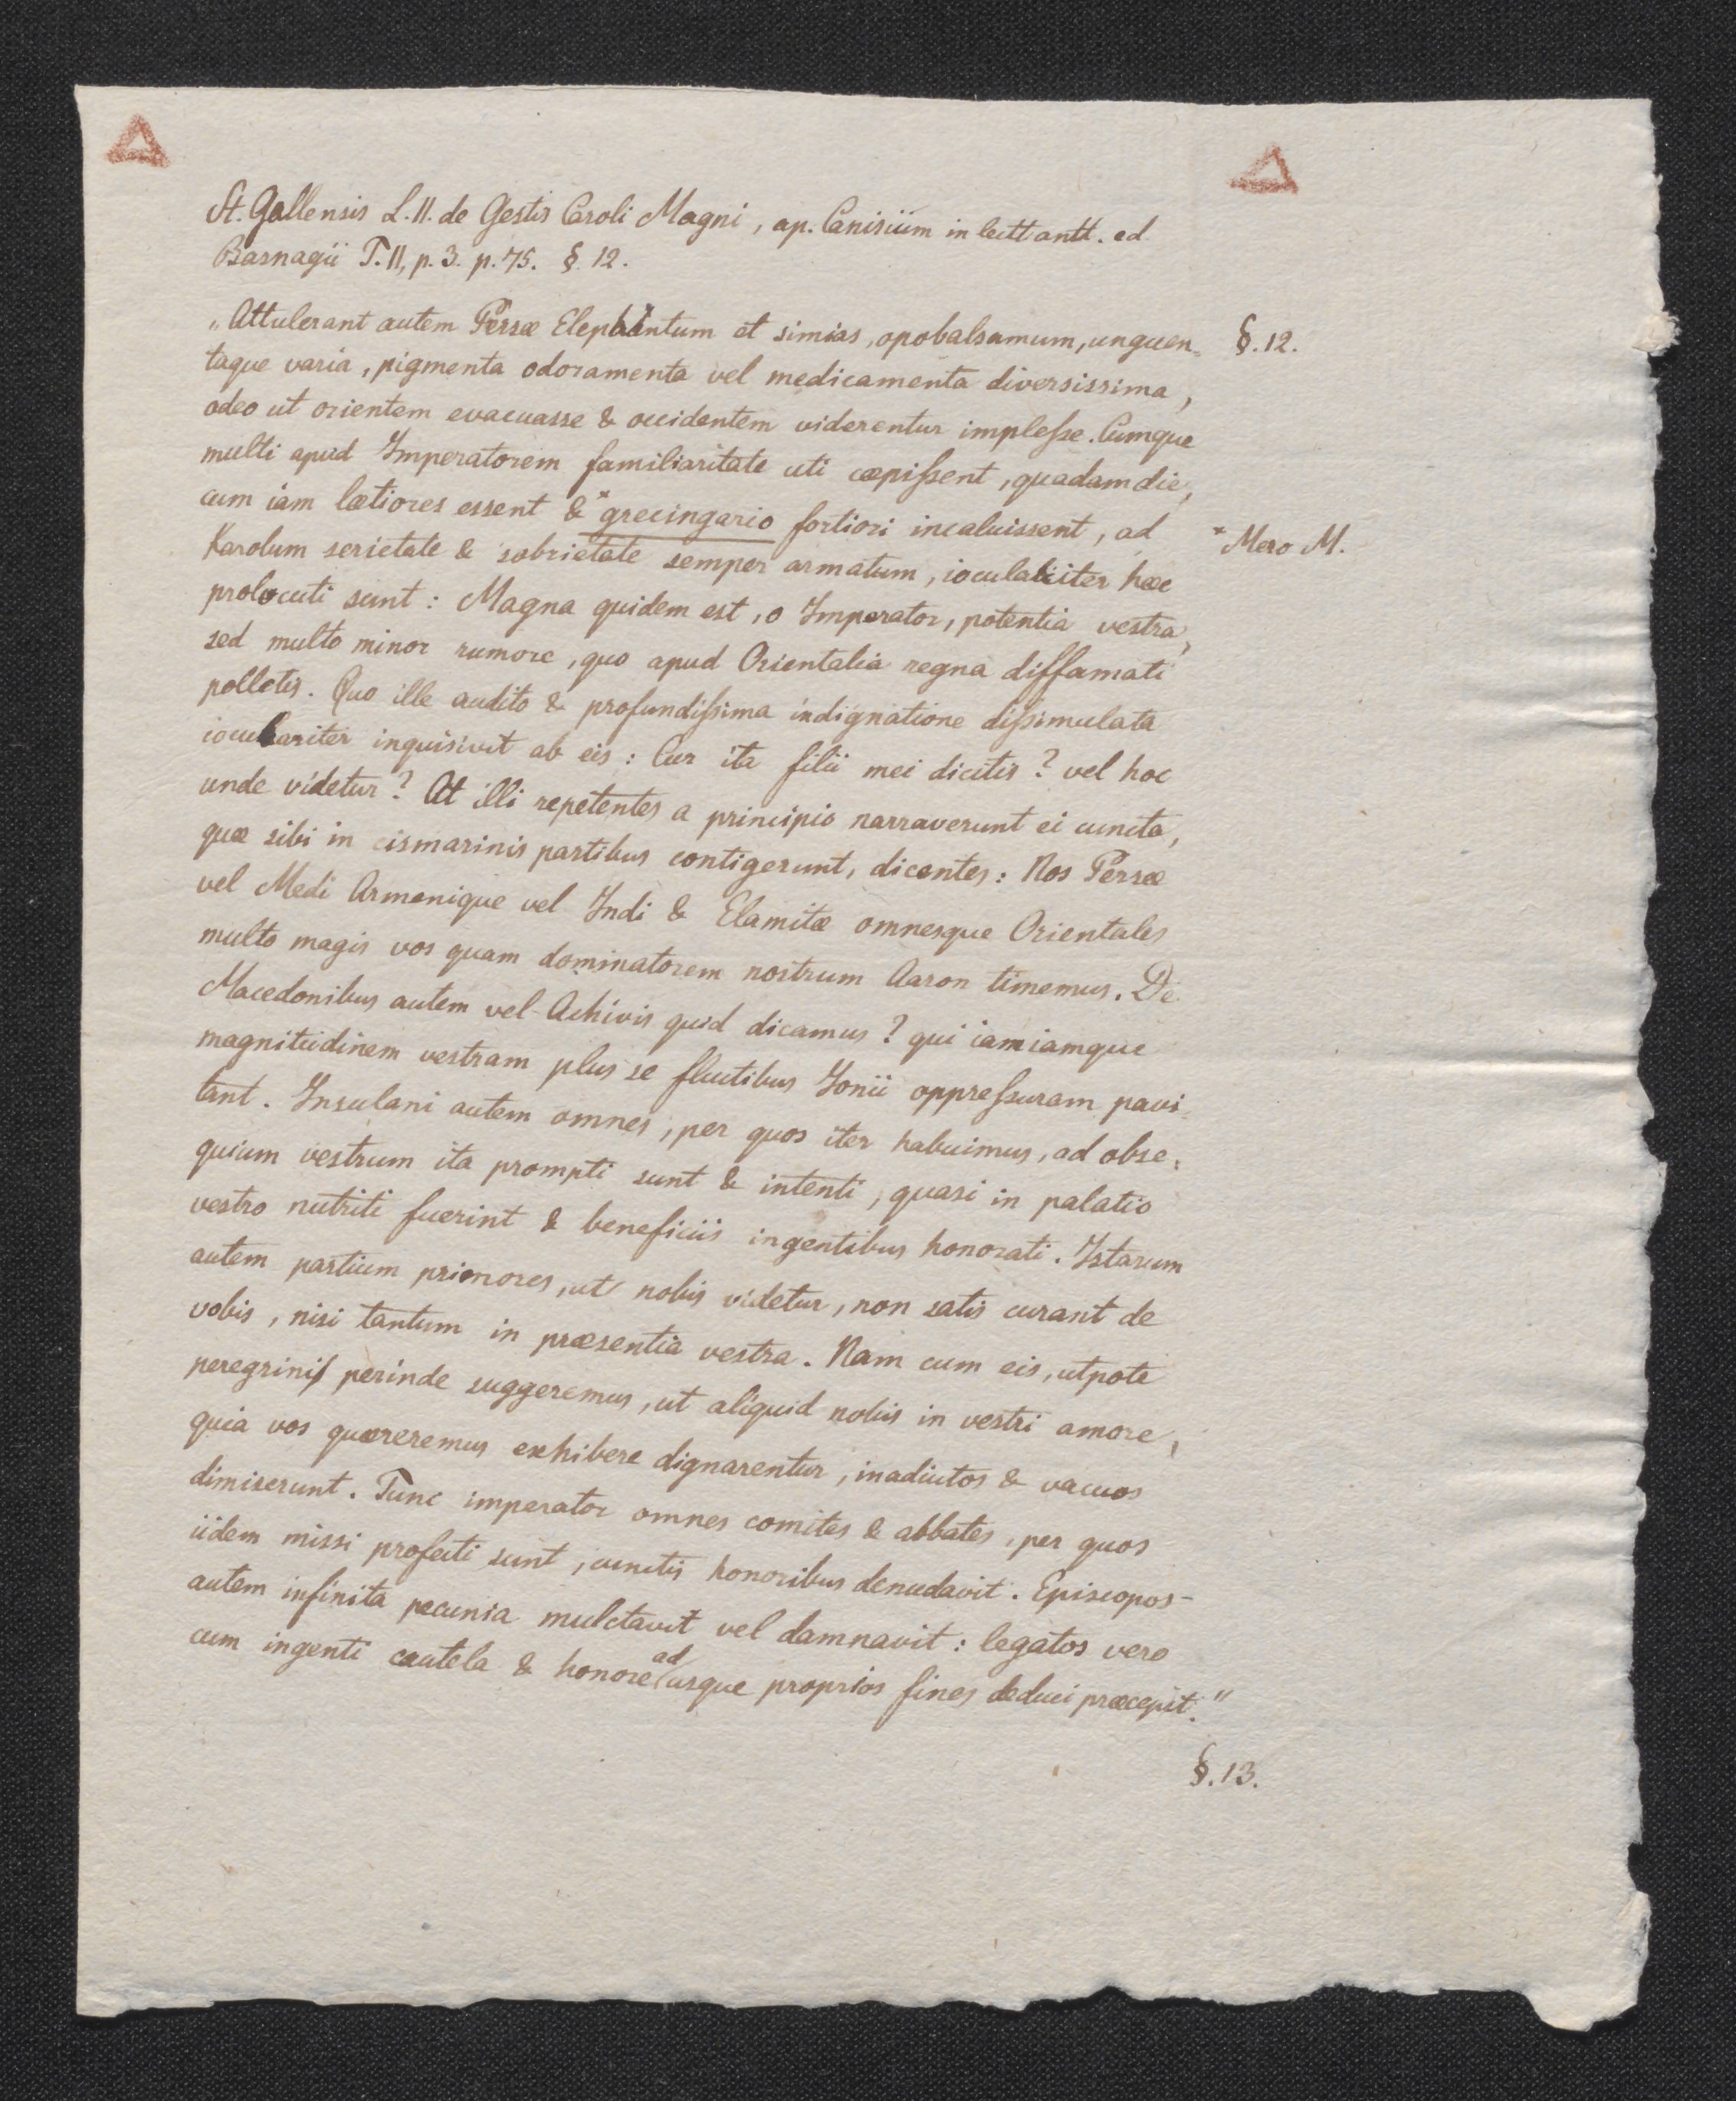 St. Gallensis L. II. de Gestis Caroli Magni, ap. Canisium in lectt antt. ed.
Basnagii T. II, p. 3. p. 75. §. 12.
„Attulerant autem Persæ Elephantum et simias, opobalsamum, unguen= §. 12.
taque varia, pigmenta odoramenta vel medicamenta diversissima,
adeo ut orientem evacuasse & occidentem viderentur implesse. Cumque
multi apud Imperatorem familiaritate uti cæpissent, quadam die,
cum iam lætiores essent & *grecingario fortiori incaluissent, ad
*Mero M.
Karolum serietate & sobrietate semper armatum, ioculariter hæc
prolocuti sunt: Magna quidem est, o Imperator, potentia vestra,
sed multo minor rumore, quo apud Orientalia regna diffamati
polletis. Quo ille audito & profundissima indignatione dissimulata
ioculariter inquisivit ab eis: Cur ita filii mei dicitis? vel hoc
unde videtur? At illi repetentes a principio narraverunt ei cuncta,
quæ sibi in cismarinis partibus contigerunt, dicentes: Nos Persæ
vel Medi Armenique vel Indi & Elamitæ omnesque Orientales
multo magis vos quam dominatorem nostrum Aaron timemus. De
Macedonibus autem vel Achivis quid dicamus? qui iamiamque
magnitudinem vestram plus se fluctibus Ionii oppressuram pavi
tant. Insulani autem omnes, per quos iter habuimus, ad obse=
quium vestrum ita prompti sunt & intenti, quasi in palatio
vestro nutriti fuerint & beneficiis ingentibus honorati. Istarum
autem partium primores, ut nobis videtur, non satis curant de
vobis, nisi tantum in præsentia vestra. Nam cum eis, utpote
peregrinis perinde suggeremus, ut aliquid nobis in vestri amore,
quia vos quæreremus exhibere dignarentur, inadiutos & vacuos
dimiserunt. Tunc imperator omnes comites & abbates, per quos
iidem missi profecti sunt, cunctis honoribus denudavit. Episcopos-
autem infinita pecunia mulctavit vel damnavit: legatos vero
cum ingenti cautela & honore ad usque proprios fines deduci præcepit."
§. 13.